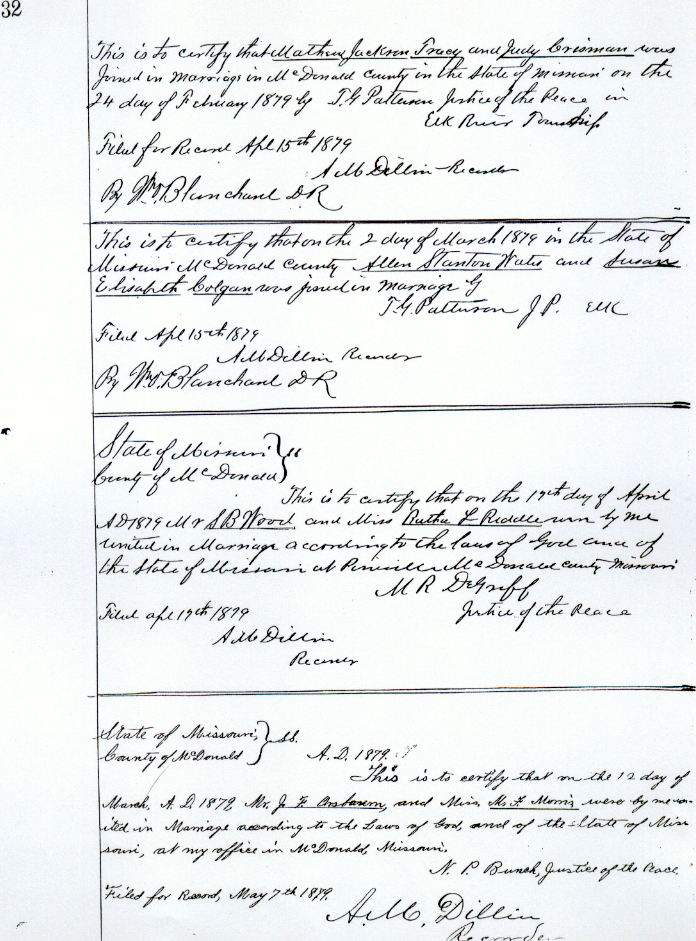 32
This is to certify that Mathew Jackson Tracy and Judy Crisman was
Joined in Marriage in McDonald County in the State of Missouri on the
24 day of February 1879 by T. G. Patterson Justice of the Peace in
Elk River Township
Filed for Record Apl 15th 1879
A M Dillin Recorder
By Wm. Blanchard D R
This is to certify that on the 2 day of March 1879 in the State of
Missouri McDonald County Allen Stanton and Susan
Elisabeth Colgan was joined in marriage by
T. G. Patterson J P. Elk
Filed Apl 15th 1879
A M Dillin Recorder
By Wm. Blanchard D R
State of Missouri }
County of McDonald }
This is to certify that on the 17th day of April
AD 1879 Mr S B Wood and Miss Riddle were by me
united in Marriage according to the laws of God and of
the State of Missouri at Pineville McDonald County Missouri
M R DeGroff
Justice of the Peace
Filed apl 19th 1879
A M Dillin
Recorder
State of Missouri, } ss.
County of McDonald } A. D. 1879.
This is to certify that on the 12 day of
March, A. D. 1879, Mr. J F and Miss M. F. Morris were by me un-
ited in Marriage according to the Laws of God, and of the State of Mis-
souri, at my office in McDonald, Missouri,
N. P. Bunch, Justice of the Peace.
Filed for Record, May 7th 1879.
A. M. Dillin
Recorder